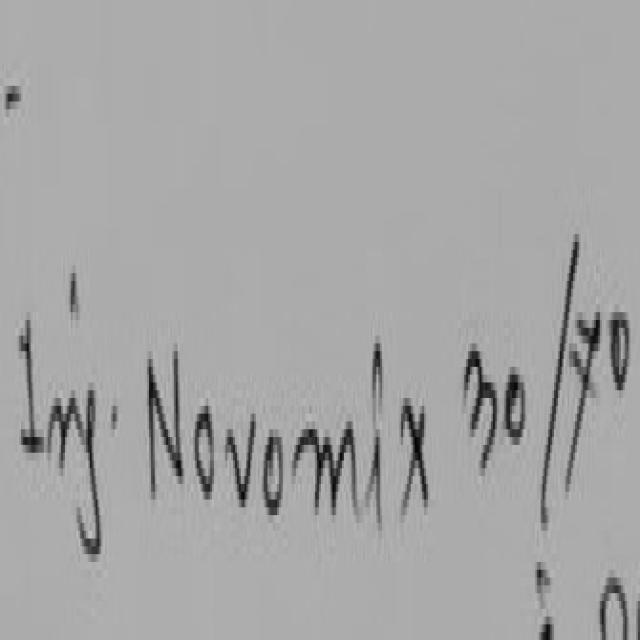 Inj. Novomix 30/70